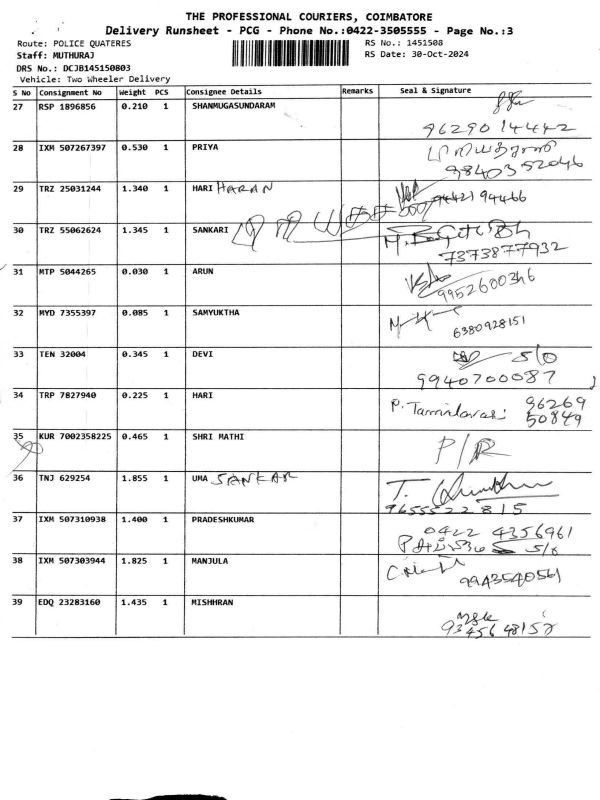 THE PROFESSIONAL COURIERS, COIMBATORE
Delivery Runsheet - PCG - Phone No.:0422-3505555 - Page No.:3
Route: POLICE QUATERES RS No.: 1451508
Staff: MUTHURAJ RS Date: 30-Oct-2024
DRS No.: DCJB145150803
Vehicle: Two Wheeler Delivery
S No Consignment No Weight PCS Consignee Details Remarks Seal & Signature
27 RSP 1896856 0.210 1 SHANMUGASUNDARAM
9629014442
28 IXM 507267397 0.530 1 PRIYA
9840352046
29 TRZ 25031244 1.340 1 HARI HARAN 94421 94466
30 TRZ 55062624 1.345 1 SANKARI
7373877932
31 MTP 5044265 0.030 1 ARUN
9952600346
32 MYD 7355397 0.085 1 SAMYUKTHA
6380928151
33 TEN 32004 0.345 1 DEVI S/O
9940700087
34 TRP 7827940 0.225 1 HARI P. Tamilarasi 96269
50849
35 KUR 7002358225 0.465 1 SHRI MATHI P/R
36 TNJ 629254 1.855 1 UMA SANKAR
9655522815
37 IXM 507310938 1.400 1 PRADESHKUMAR 0422 4356961
S/O
38 IXM 507303944 1.825 1 MANJULA
9943540561
39 EDQ 23283160 1.435 1 MISHHRAN
9345648152